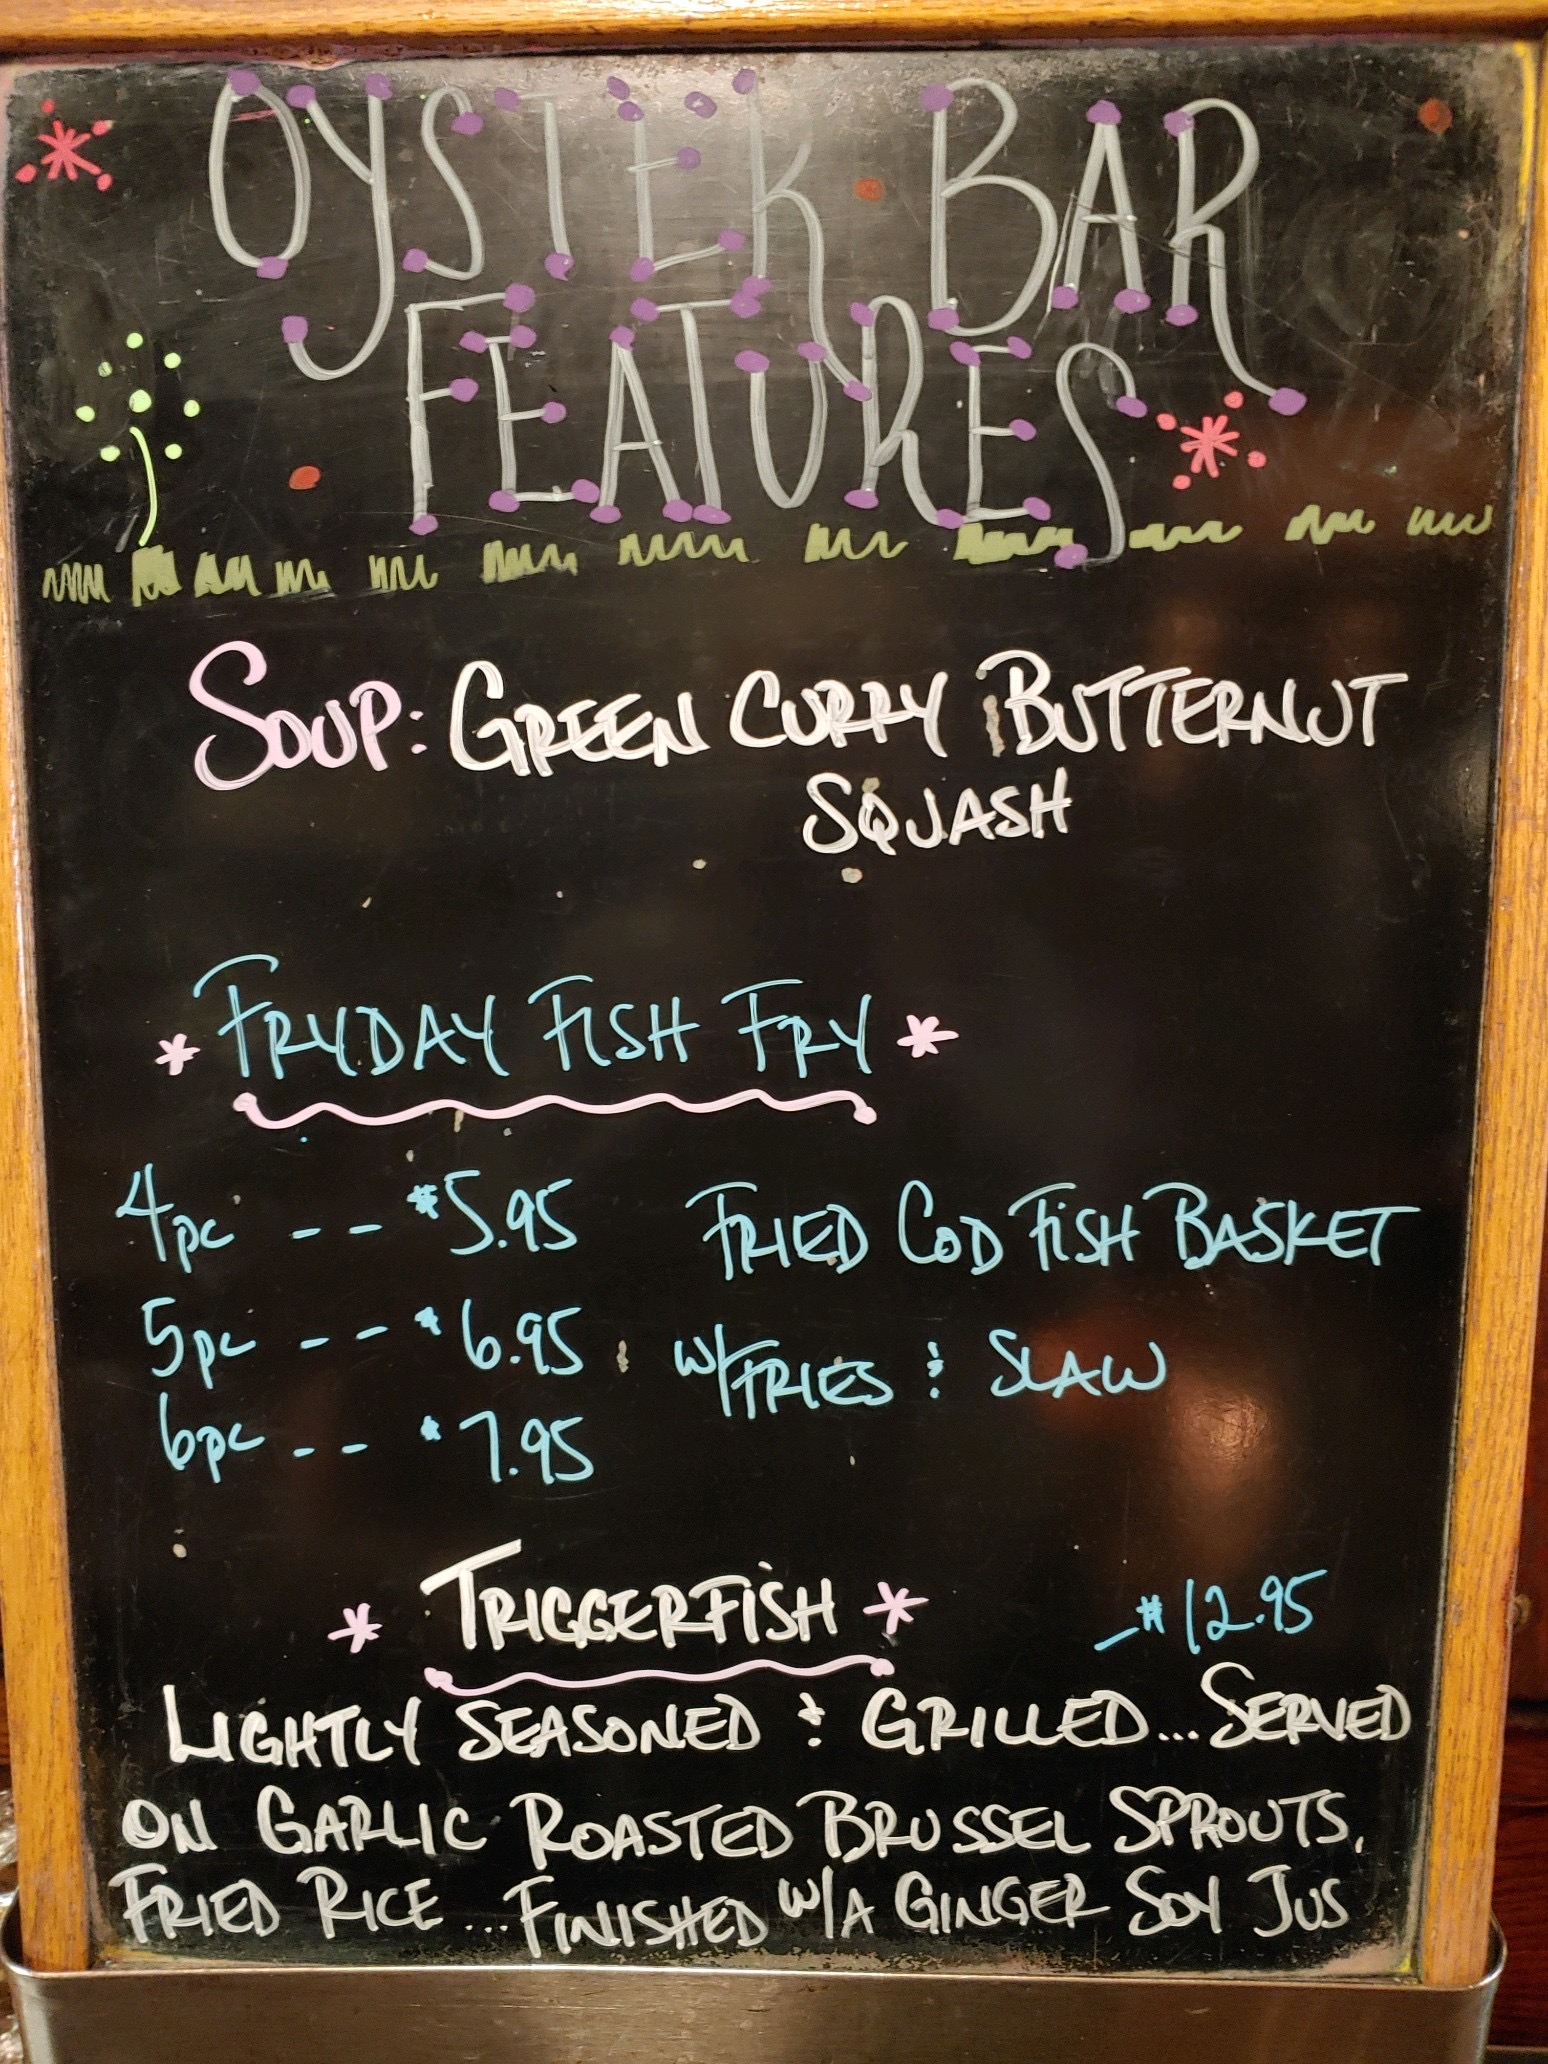 OYSTER BAR
FEATURES
SOUP: GREEN CURRY BUTTERNUT
SQUASH
* FRYDAY FISH FRY *
4pc -- $5.95 FRIED COD FISH BASKET
5pc -- $6.95 W/FRIES & SLAW
6pc -- $7.95
* TRIGGERFISH * -$12.95
LIGHTLY SEASONED & GRILLED...SERVED
ON GARLIC ROASTED BRUSSEL SPROUTS,
FRIED RICE...FINISHED W/A GINGER SOY JUS